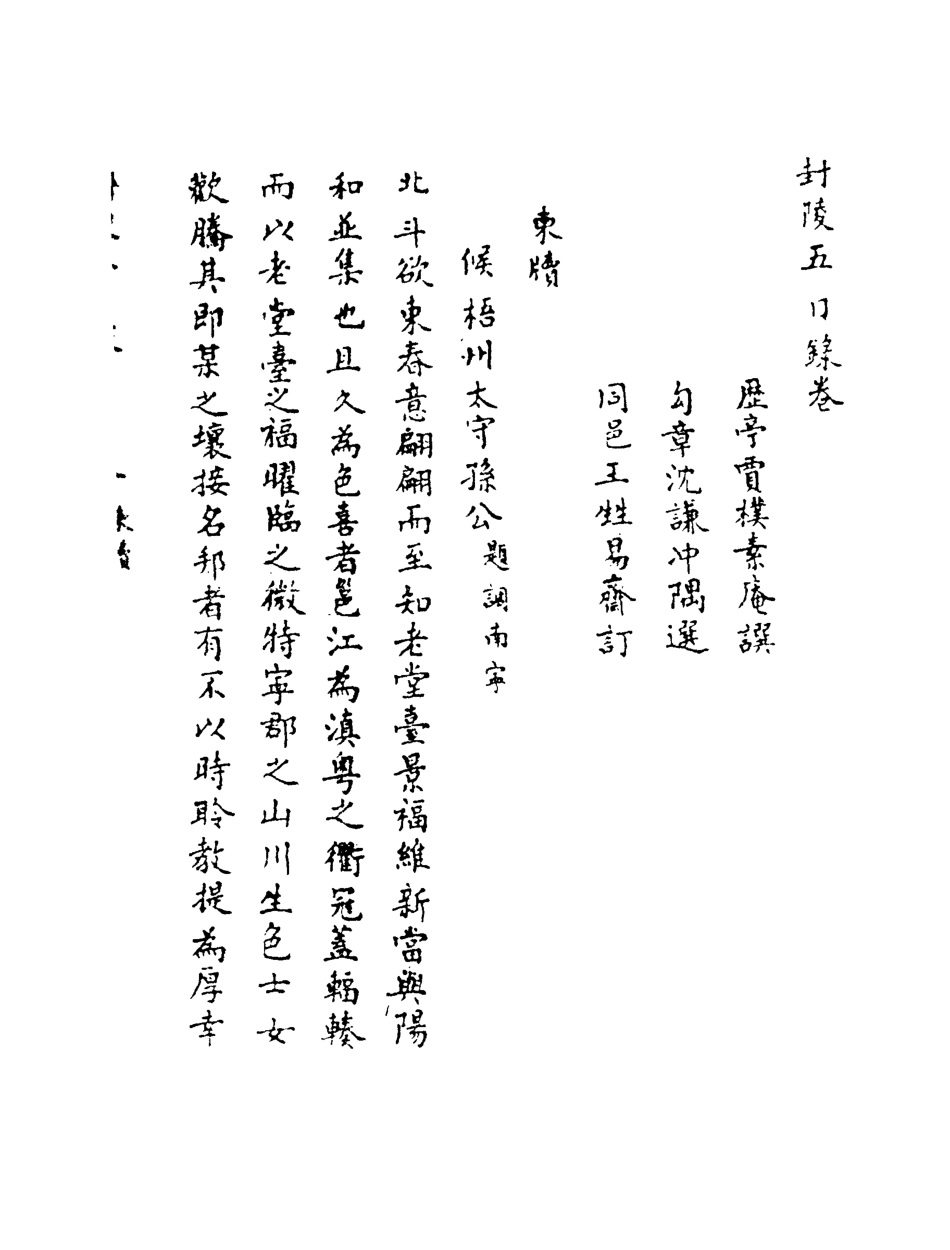 封陵五日錄卷
歷亭賈樸素庵譔
勾章沈謙冲隅選
同邑王甡易齋訂
柬牘
候梧州太守孫公題調南寧
北斗欲東春意翩翩而至知老堂臺景福維新當與陽
和並集也且久為色喜者邕江為滇粵之衢冠蓋輻輳
而以老堂臺之福曜臨之微特寧郡之山川生色士女
歡騰其即某之壤接名邦者有不以時聆教提為厚幸